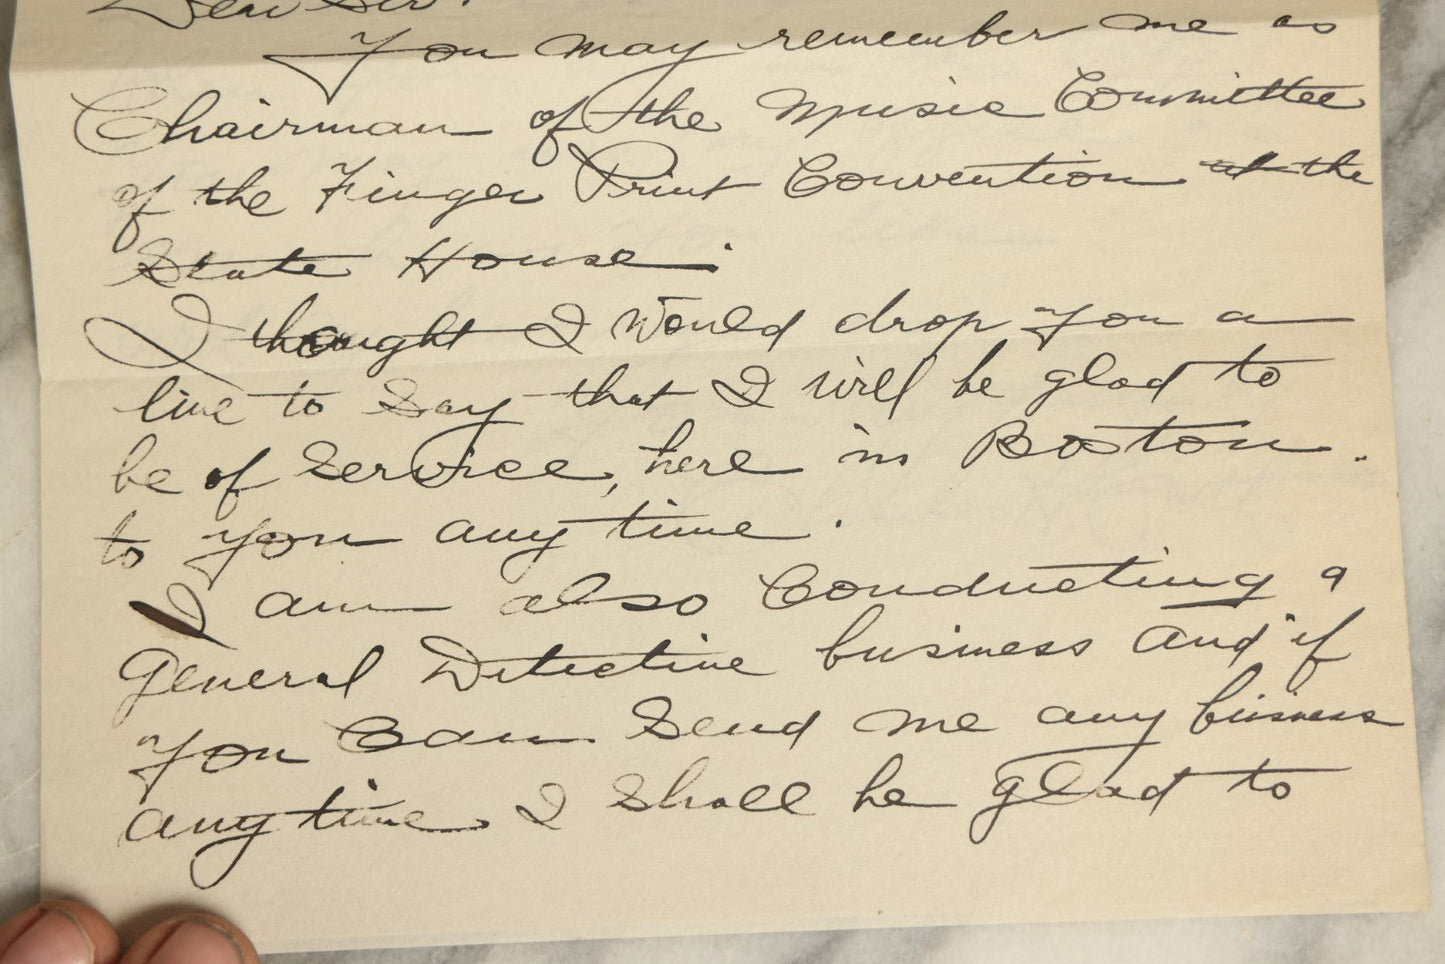 Dear Sir:
You may remember me as
Chairman of the Music Committee
of the Finger Print Convention at the
State House.
I thought I Would drop you a
line to Say that I will be glad to
be of Service, here in Boston.
to you any time.
I am also Conducting a
General Detective business and if
you Can Send me any business
any time I Shall be glad to